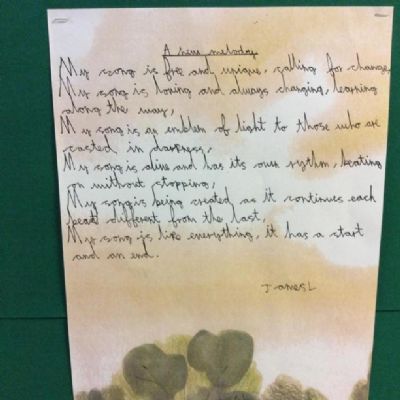 A new melody
My song is free and unique, calling for change,
My song is loving and always changing, learning
along the way,
My song is an emblem of light to those who are
casted in darkness,
My song is alive and has its own rythm, beating
on without stopping,
My song is being created as it continues each
beat different from the last.
My song is like everything, it has a start
and an end.
James L